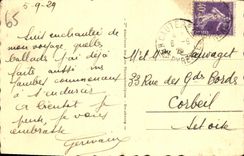 5-9-29
65
Suis enchantée de
mon voyage, quelles
ballades j'ai déjà
faite aussi mes
jambes commencent
à s'endurcir
A bientôt je
pense, je vous
embrasse
Germaine
M et M Sauvaget
33 Rue des Gds Bordes
Corbeil
S et Oise